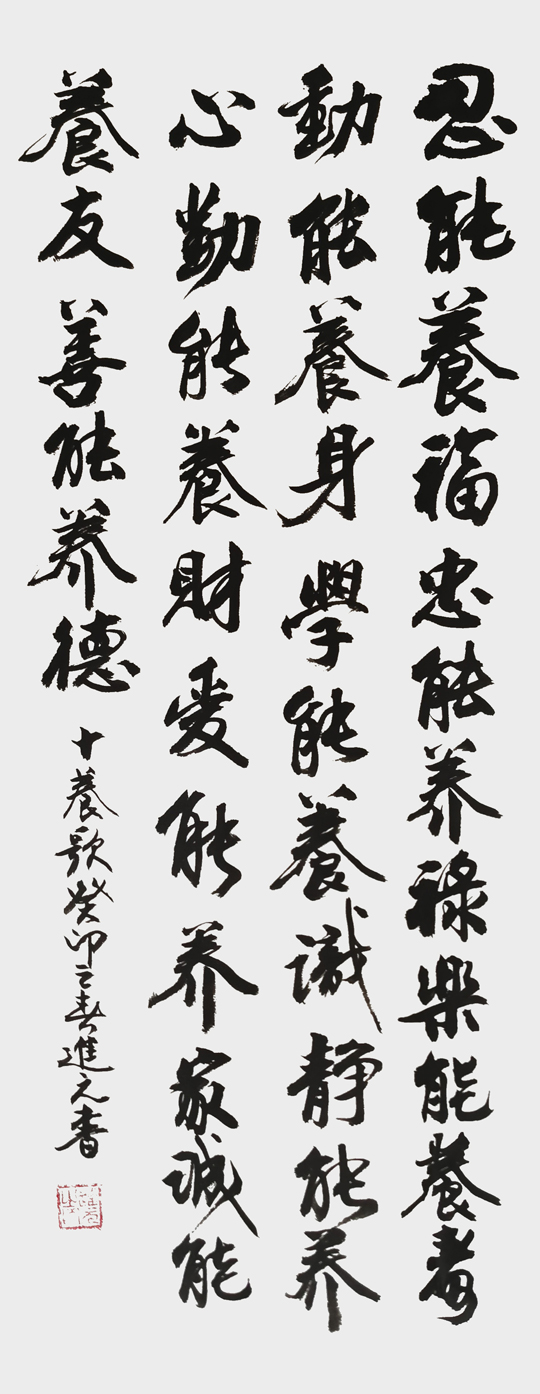 忍能養福忠能养禄樂能養壽
動能養身學能養識静能养
心勤能養財爱能养家誠能
養友善能养德
十養歌癸卯之春進元書